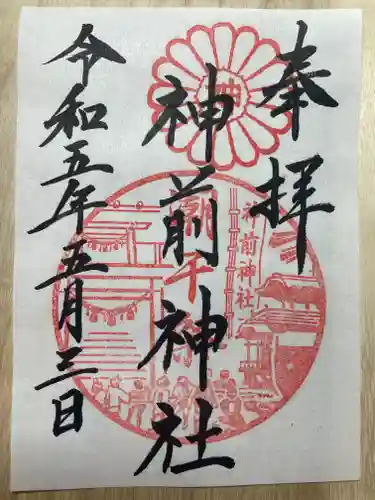 奉拝
神前神社
令和五年五月三日
神前神社